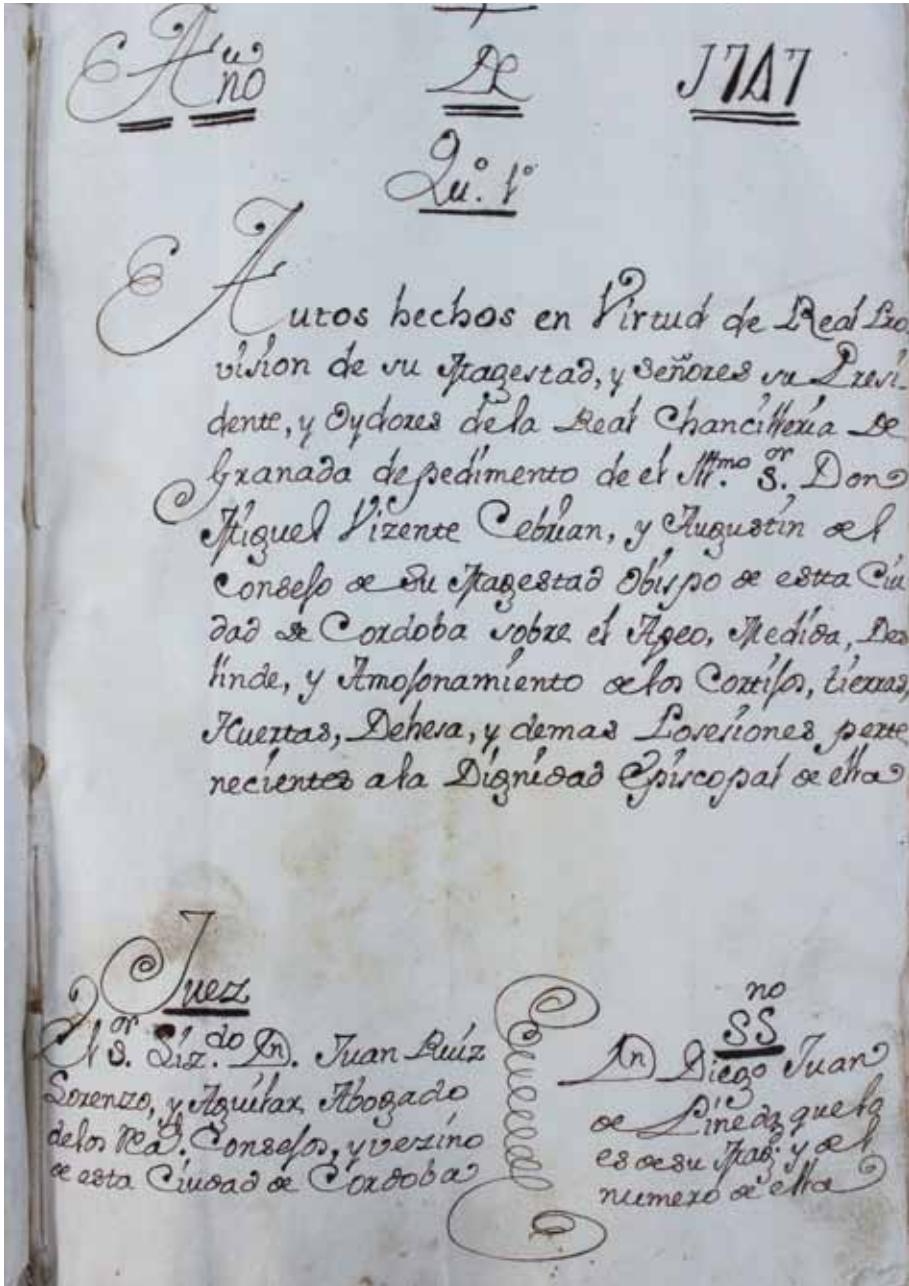 Año De 1747
Qu.º 1º
Autos hechos en Virtud de Real Pro
vision de su Magestad, y Señores su Presi-
dente, y Oydores de la Real Chancilleria De
Granada de pedimento de el Illmo. Sor. Don
Miguel Vizente Cebrian, y Augustin de el
Consejo de Su Magestad Obispo de estta Ciu
dad de Cordoba sobre el Apeo, Medida, Des
linde, y Amojonamiento de los Cortijos, tierras,
Huertas, Dehesa, y demas Posesiones perte
necientes a la Dignidad Episcopal de ella
Juez
El Sor. Lizdo. Dn. Juan Ruiz
Lorenzo, y Aguilar Abogado
de los Rs. Consejos, y vezino
de esta Ciudad de Cordoba
SSno
Dn Diego Juan
de Pineda, que lo
es de su Mag. y de el
numero de ella